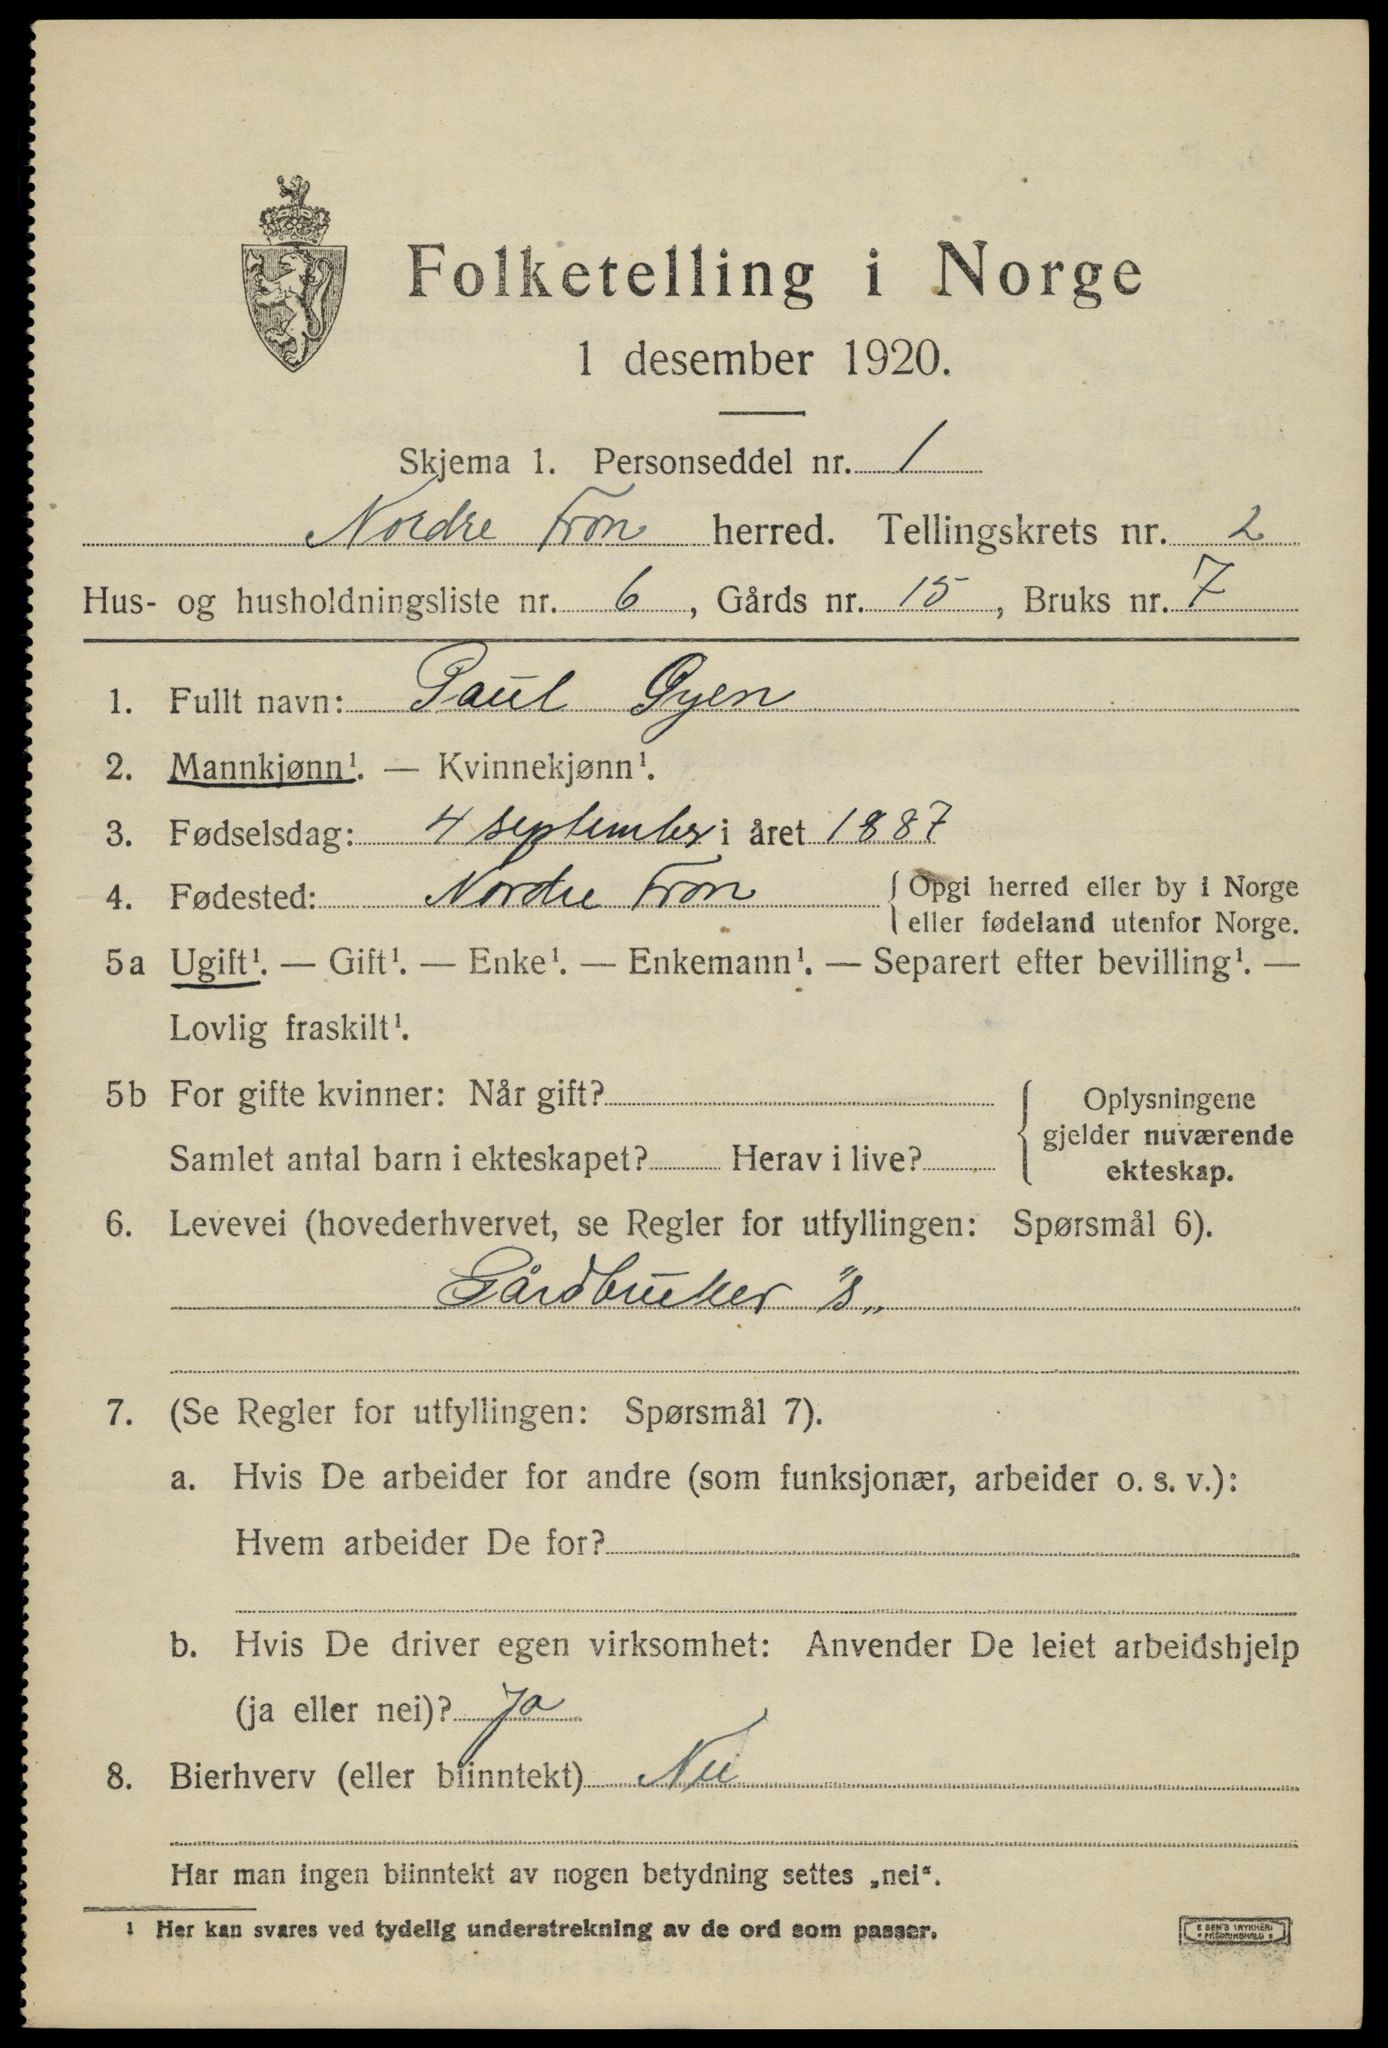 Folketelling i Norge
1 desember 1920.
Skjema 1. Personseddel nr. 1
Nordre Fron herred. Tellingskrets nr. 2
Hus- og husholdningsliste nr. 6, Gårds nr. 15, Bruks nr. 7
1. Fullt navn: Paul Øyen
2. Mannkjønn¹. — Kvinnekjønn¹.
3. Fødselsdag: 4 september i året 1887
4. Fødested: Nordre Fron { Opgi herred eller by i Norge
eller fødeland utenfor Norge.
5a Ugift¹. — Gift¹. — Enke¹. — Enkemann¹. — Separert efter bevilling¹. —
Lovlig fraskilt¹.
5b For gifte kvinner: Når gift?
Samlet antal barn i ekteskapet? Herav i live?
Oplysningene
gjelder nuværende
ekteskap.
6. Levevei (hovederhvervet, se Regler for utfyllingen: Spørsmål 6).
Gårdbruker "s„
7. (Se Regler for utfyllingen: Spørsmål 7).
a. Hvis De arbeider for andre (som funksjonær, arbeider o. s. v.):
Hvem arbeider De for?
b. Hvis De driver egen virksomhet: Anvender De leiet arbeidshjelp
(ja eller nei)? Ja
8. Bierhverv (eller biinntekt) Nei
Har man ingen biinntekt av nogen betydning settes „nei“.
1 Her kan svares ved tydelig understrekning av de ord som passer.